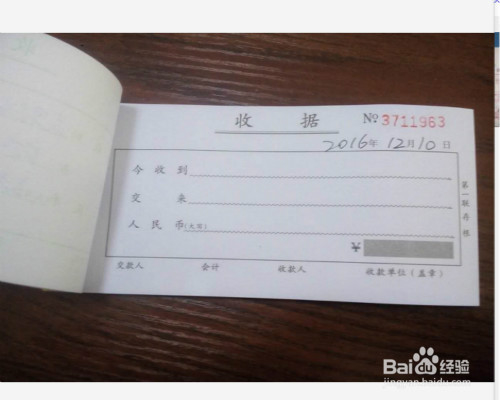 收 据 № 3711963
2016年12月10日
今收到
交来
人民币(大写)
¥
第一联存根
交款人 会计 收款人 收款单位（盖章）
Baidu经验
jingyan.baidu.com